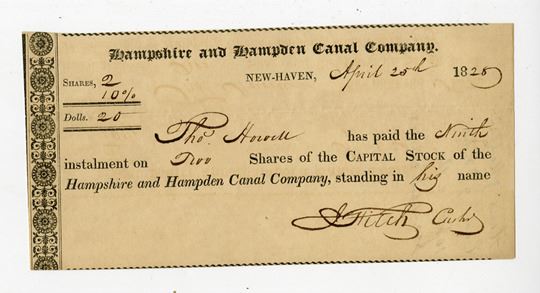 Hampshire and Hampden Canal Company.
SHARES, 2
NEW-HAVEN, April 25th 1828
10%
Dolls. 20
Thos Howell has paid the Ninth
instalment on Two Shares of the CAPITAL STOCK of the
Hampshire and Hampden Canal Company, standing in his name
J Fitch Cashr